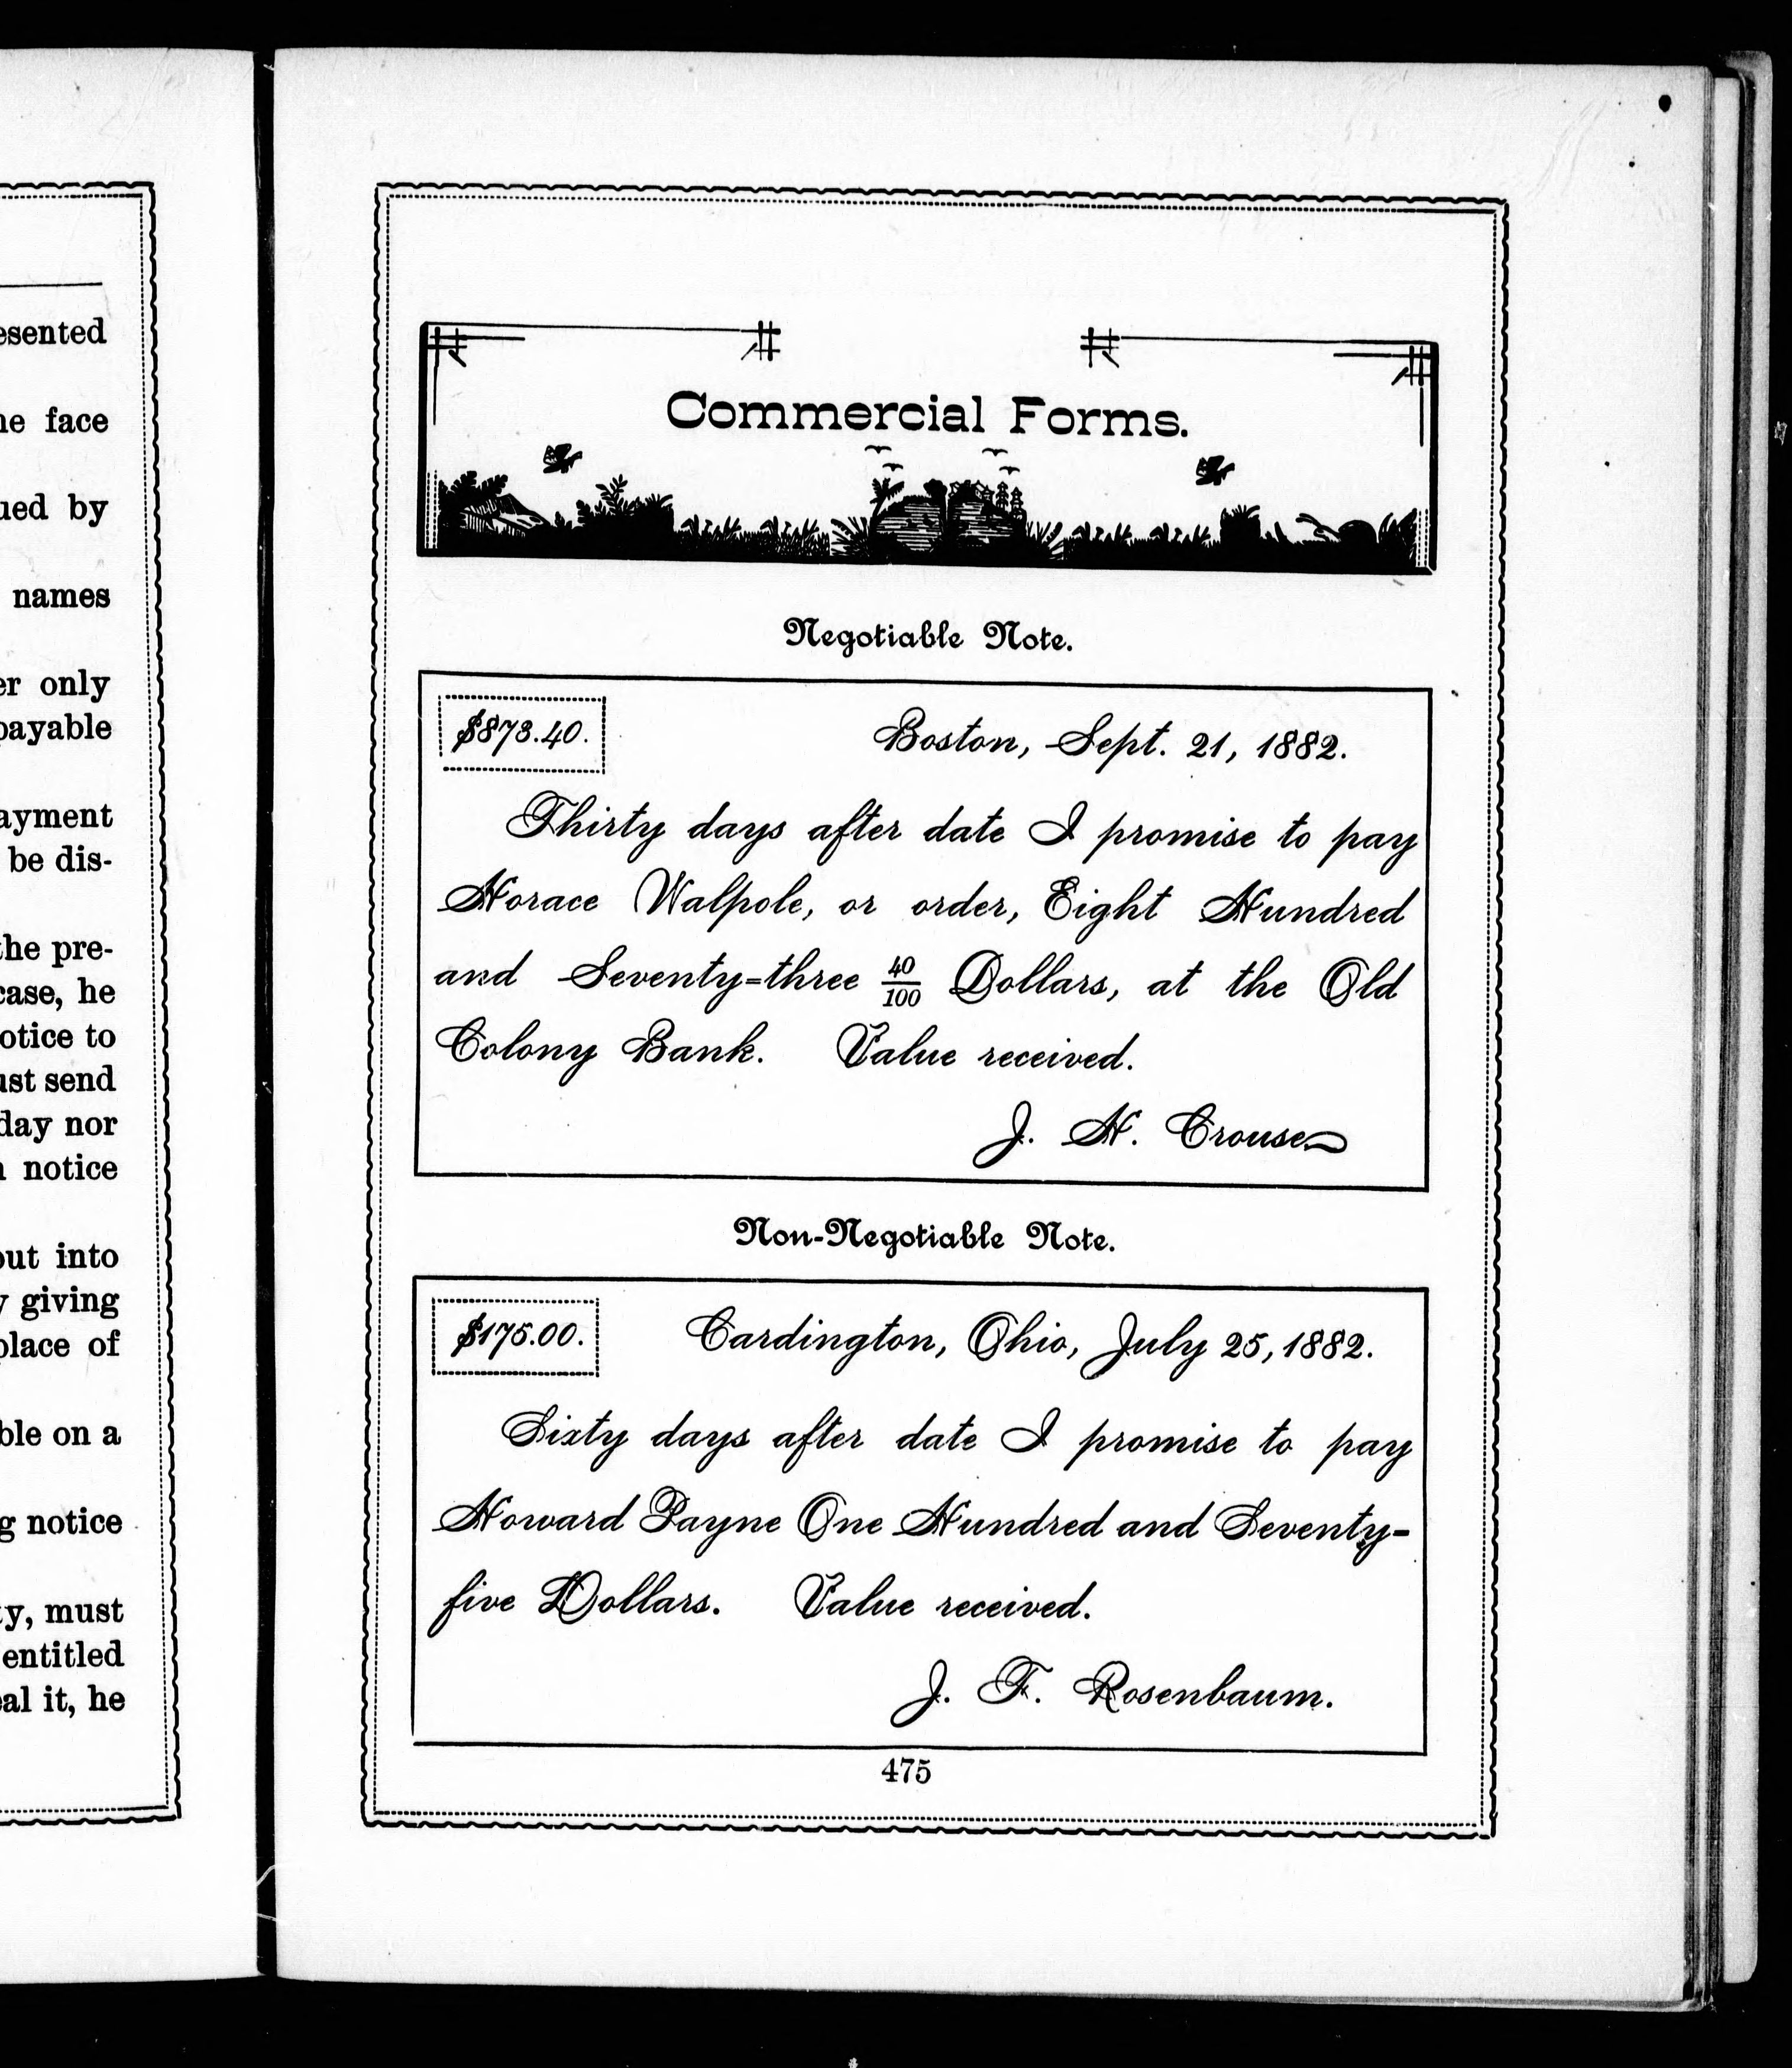 esented
face
ued by
names
only
payable
ayment
be dis-
the pre-
case, he
otice to
ust send
day nor
notice
out into
giving
place of
ble on a
g notice
ty, must
entitled
eal it, he
Commercial Forms.
Negotiable Note.
$873.40.
Boston, Sept. 21, 1882.
Thirty days after date I promise to pay
Horace Walpole, or order, Eight Hundred
and Seventy=three 40/100 Dollars, at the Old
Colony Bank. Value received.
J. H. Crouse
Non-Negotiable Note.
$175.00.
Cardington, Ohio, July 25, 1882.
Sixty days after date I promise to pay
Howard Payne One Hundred and Seventy=
five Dollars. Value received.
J. F. Rosenbaum.
475